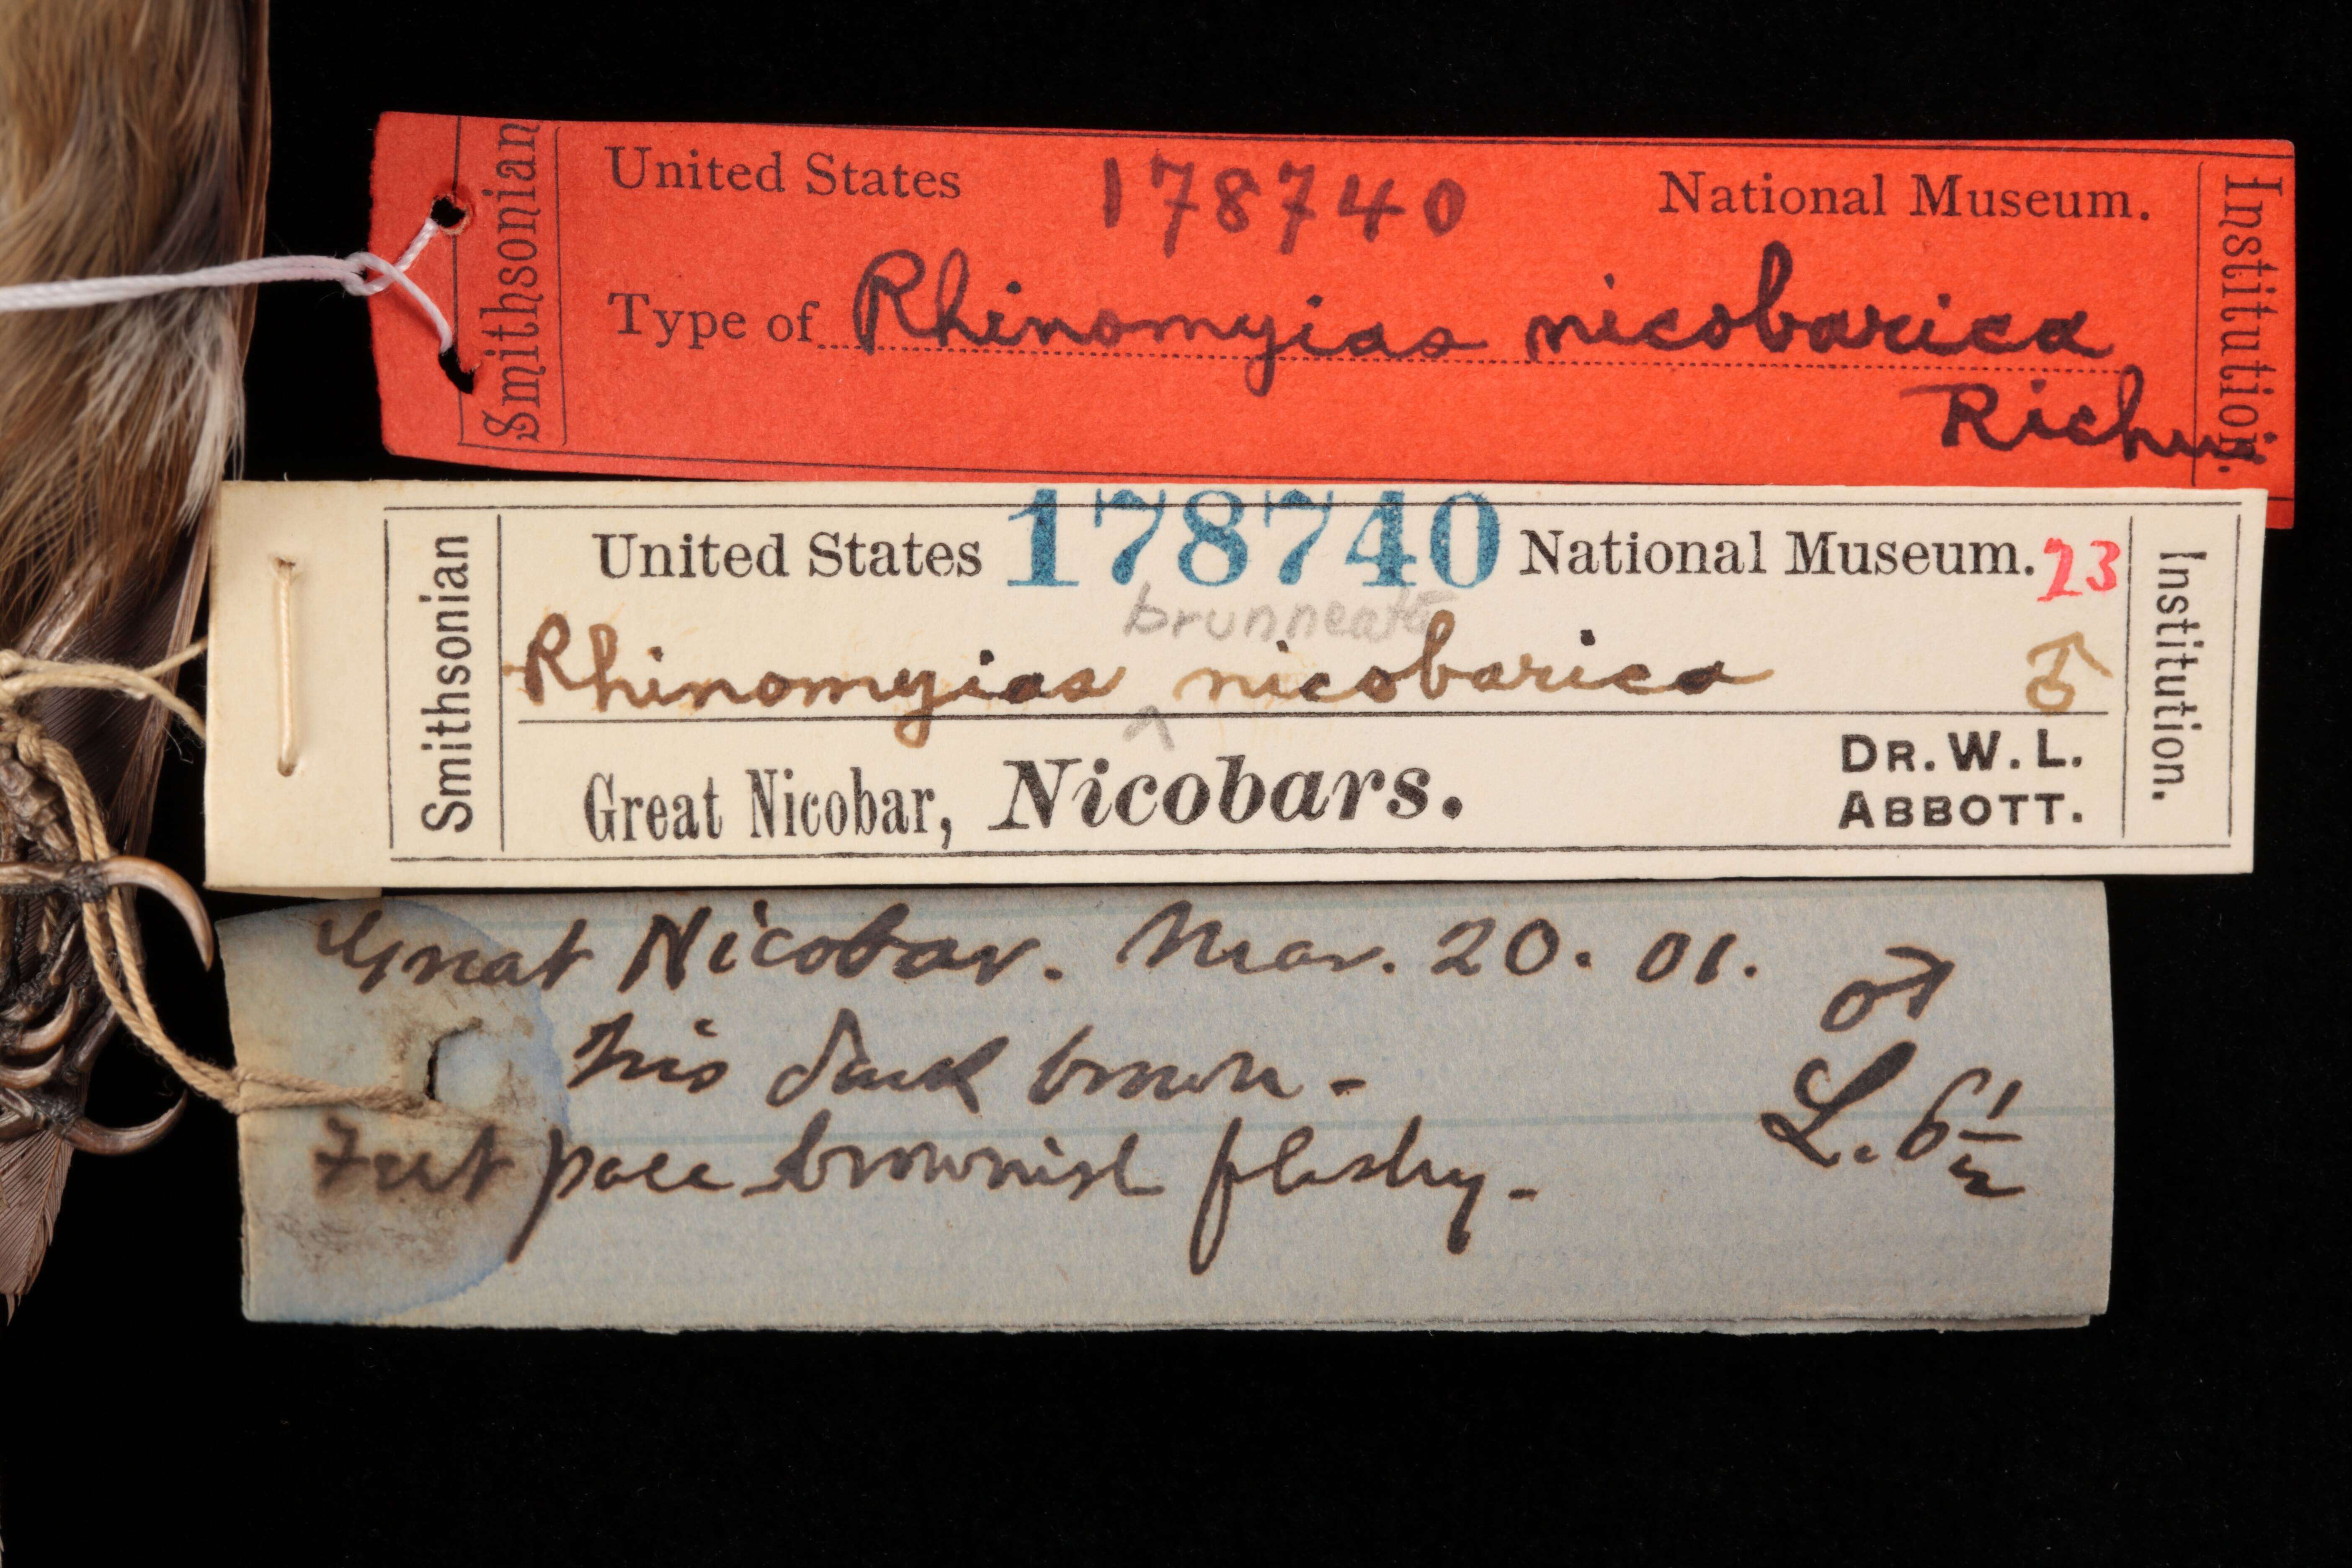 Smithsonian
United States 178740 National Museum.
Type of Rhinomyias nicobarica
Richm.
Institution.
Smithsonian
United States 178740 National Museum. 23
brunneata
Rhinomyias ^ nicobarica ♂
Great Nicobar, Nicobars. DR. W. L. ABBOTT.
Institution.
Great Nicobar. Mar. 20. 01.
♂
Iris dark brown -
L. 6 1/2
Feet pale brownish fleshy -